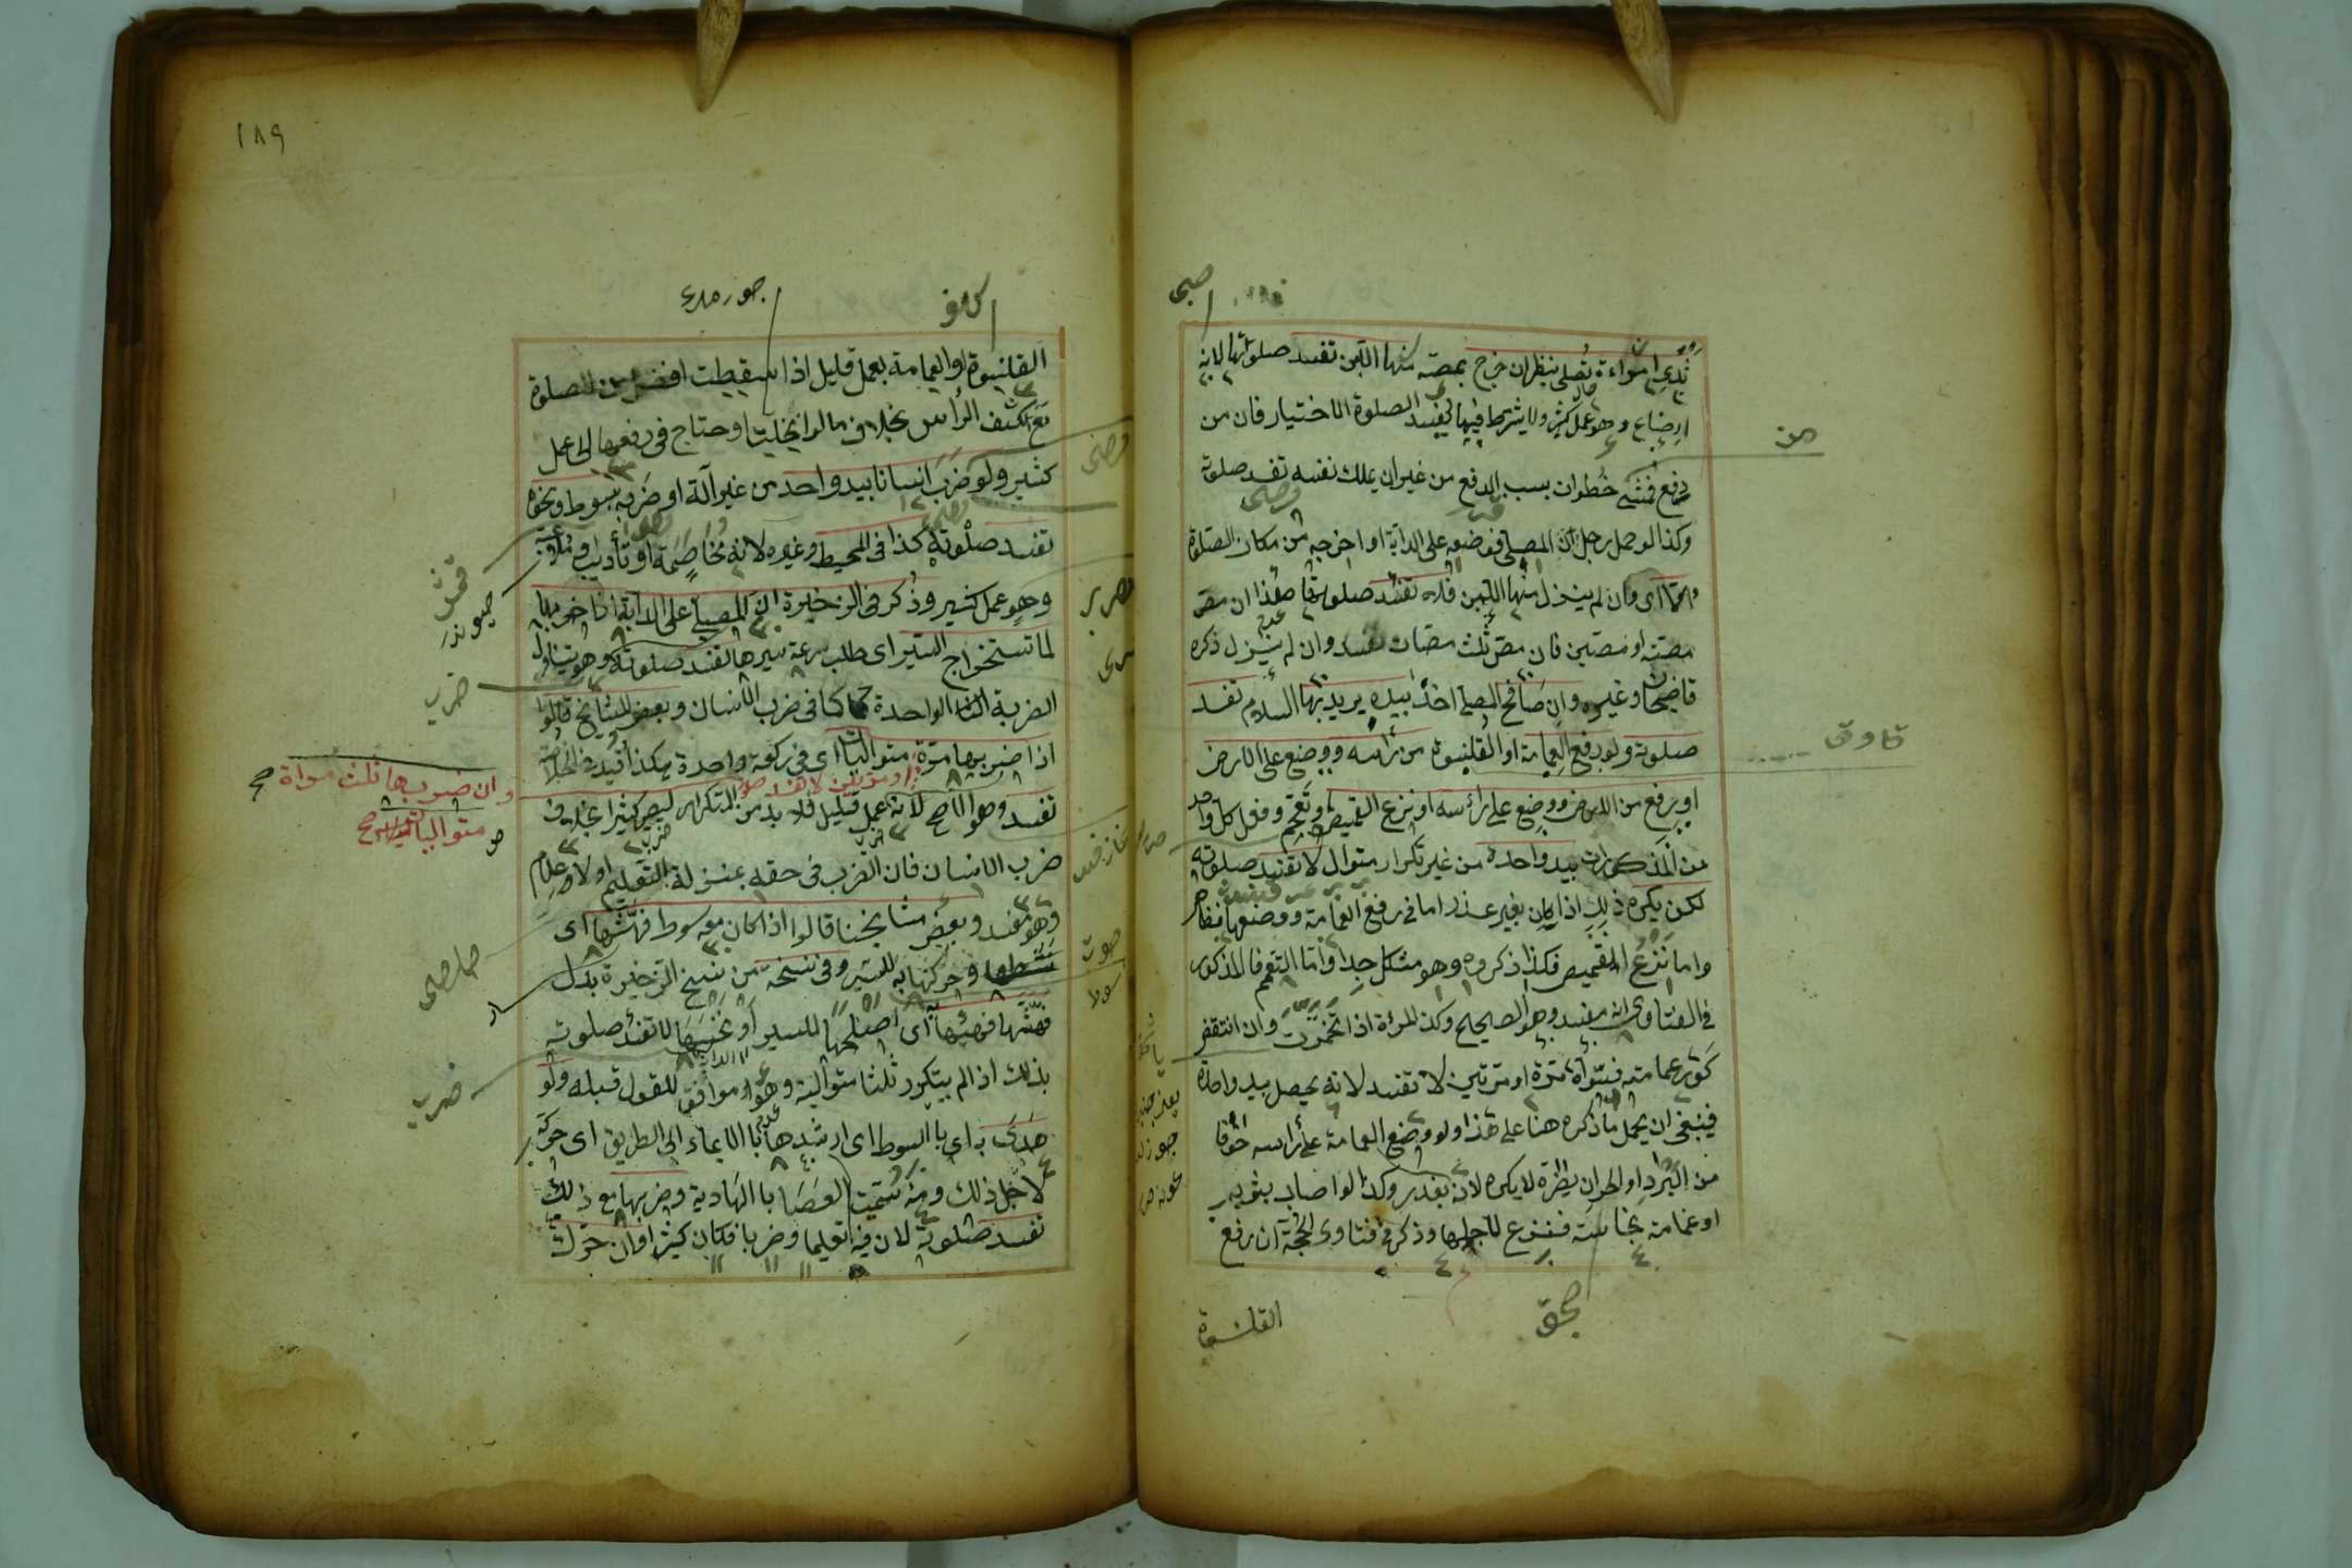 ثدى امراءة تصلى ينظر ان خرج بمصه منها اللبن تفسد صلوتها لانه
ارضاع وهو عمل كثير ولا يشترط فيما يفسد الصلوة الاختيار فان من
دفع فمشى خطوات بسبب الدفع من غير ان يملك نفسه تفسد صلوته
وكذا لو حمل رجل المصلى فوضعه على الدابة او اخرجه من مكان الصلوة
واما اى وان لم ينزل منها اللبن فلا تفسد صلوتها هذا ان مص
مصة او مصتين فان مص ثلث مصات تفسد وان لم ينزل ذكره
قاضيخان وغيره وان صافح المصلى احدا بيده يريد بها السلام تفسد
صلوته ولو رفع العمامة او القلنسوة من رأسه ووضع على الارض
او رفع من الارض ووضع على رأسه او نزع القميص او تعمم وفعل كل واحد
من المذكورات بيد واحدة من غير تكرار متوال لا تفسد صلوته
لكن يكره ذلك اذا كان بغير عذر اما فى رفع العمامة ووضعها فظاهر
واما نزع القميص فكذا ذكروه وهو مشكل جدا واما التعمم فالمذكور
فى الفتاوى انه مفسد وهو الصحيح وكذا المرأة اذا تخمرت وان انتقض
كور عمامته فسواه مرة او مرتين لا تفسد لانه يحصل بيد واحدة
فينبغى ان يحمل ما ذكره هنا على هذا ولو وضع العمامة على رأسه خوفا
من البرد او الحر ان يضره لا يكره لانه بعذر وكذا لو اصاب ثوبه
او عمامته نجاسة فنزع لاجلها وذكر فى فتاوى الحجة ان رفع
القلنسوة
١٨٩
القلنسوة او العمامة بعمل قليل اذا سقطت افضل من الصلوة
مع كشف الرأس بخلاف ما لو انحلت او احتاج فى رفعها الى عمل
كثير ولو ضرب انسانا بيد واحدة من غير آلة او ضربه بسوط ونحوه
تفسد صلوته كذا فى المحيط وغيره لانه مخاصمة او تأديب او ملاعبة
وهو عمل كثير وذكر فى الذخيرة ان المصلى على الدابة اذا ضربها
لاستخراج السير اى طلب سرعة سيرها تفسد صلوته وهو يتناول
الضربة الواحدة كما فى ضرب الانسان وبعض المشايخ قالوا
اذا ضربها مرة متواليا اى فى ركعة واحدة هكذا قيده فى الخلاصة
او مرتين لا تفسد صلوته
وان ضربها ثلث مراة صح
متواليات صح
تفسد وهو الاصح لانه عمل قليل فلا بد من التكرار ليصير كثيرا بخلاف
ضرب الانسان فان الضرب فى حقه بمنزلة التعليم او لاعلام
وهو مفسد وبعض مشايخنا قالوا اذا كان معه سوط فهشها اى
وحركها به للسير وفى نسخة من نسخ الذخيرة بدل
فهشها فهيأها اى اصلحها للسير او نخسها لا تفسد صلوته
بذلك اذا لم يتكرر ثلثا متوالية وهو موافق للقول قبله ولو
هدى به اى بالسوط اى ارشدها بالايماء الى الطريق اى حركه
لاجل ذلك ومنه سميت العصا بالهادية وضربها مع ذلك
تفسد صلوته لان فيه تعليما وضربا فكان كثيرا وان حرك